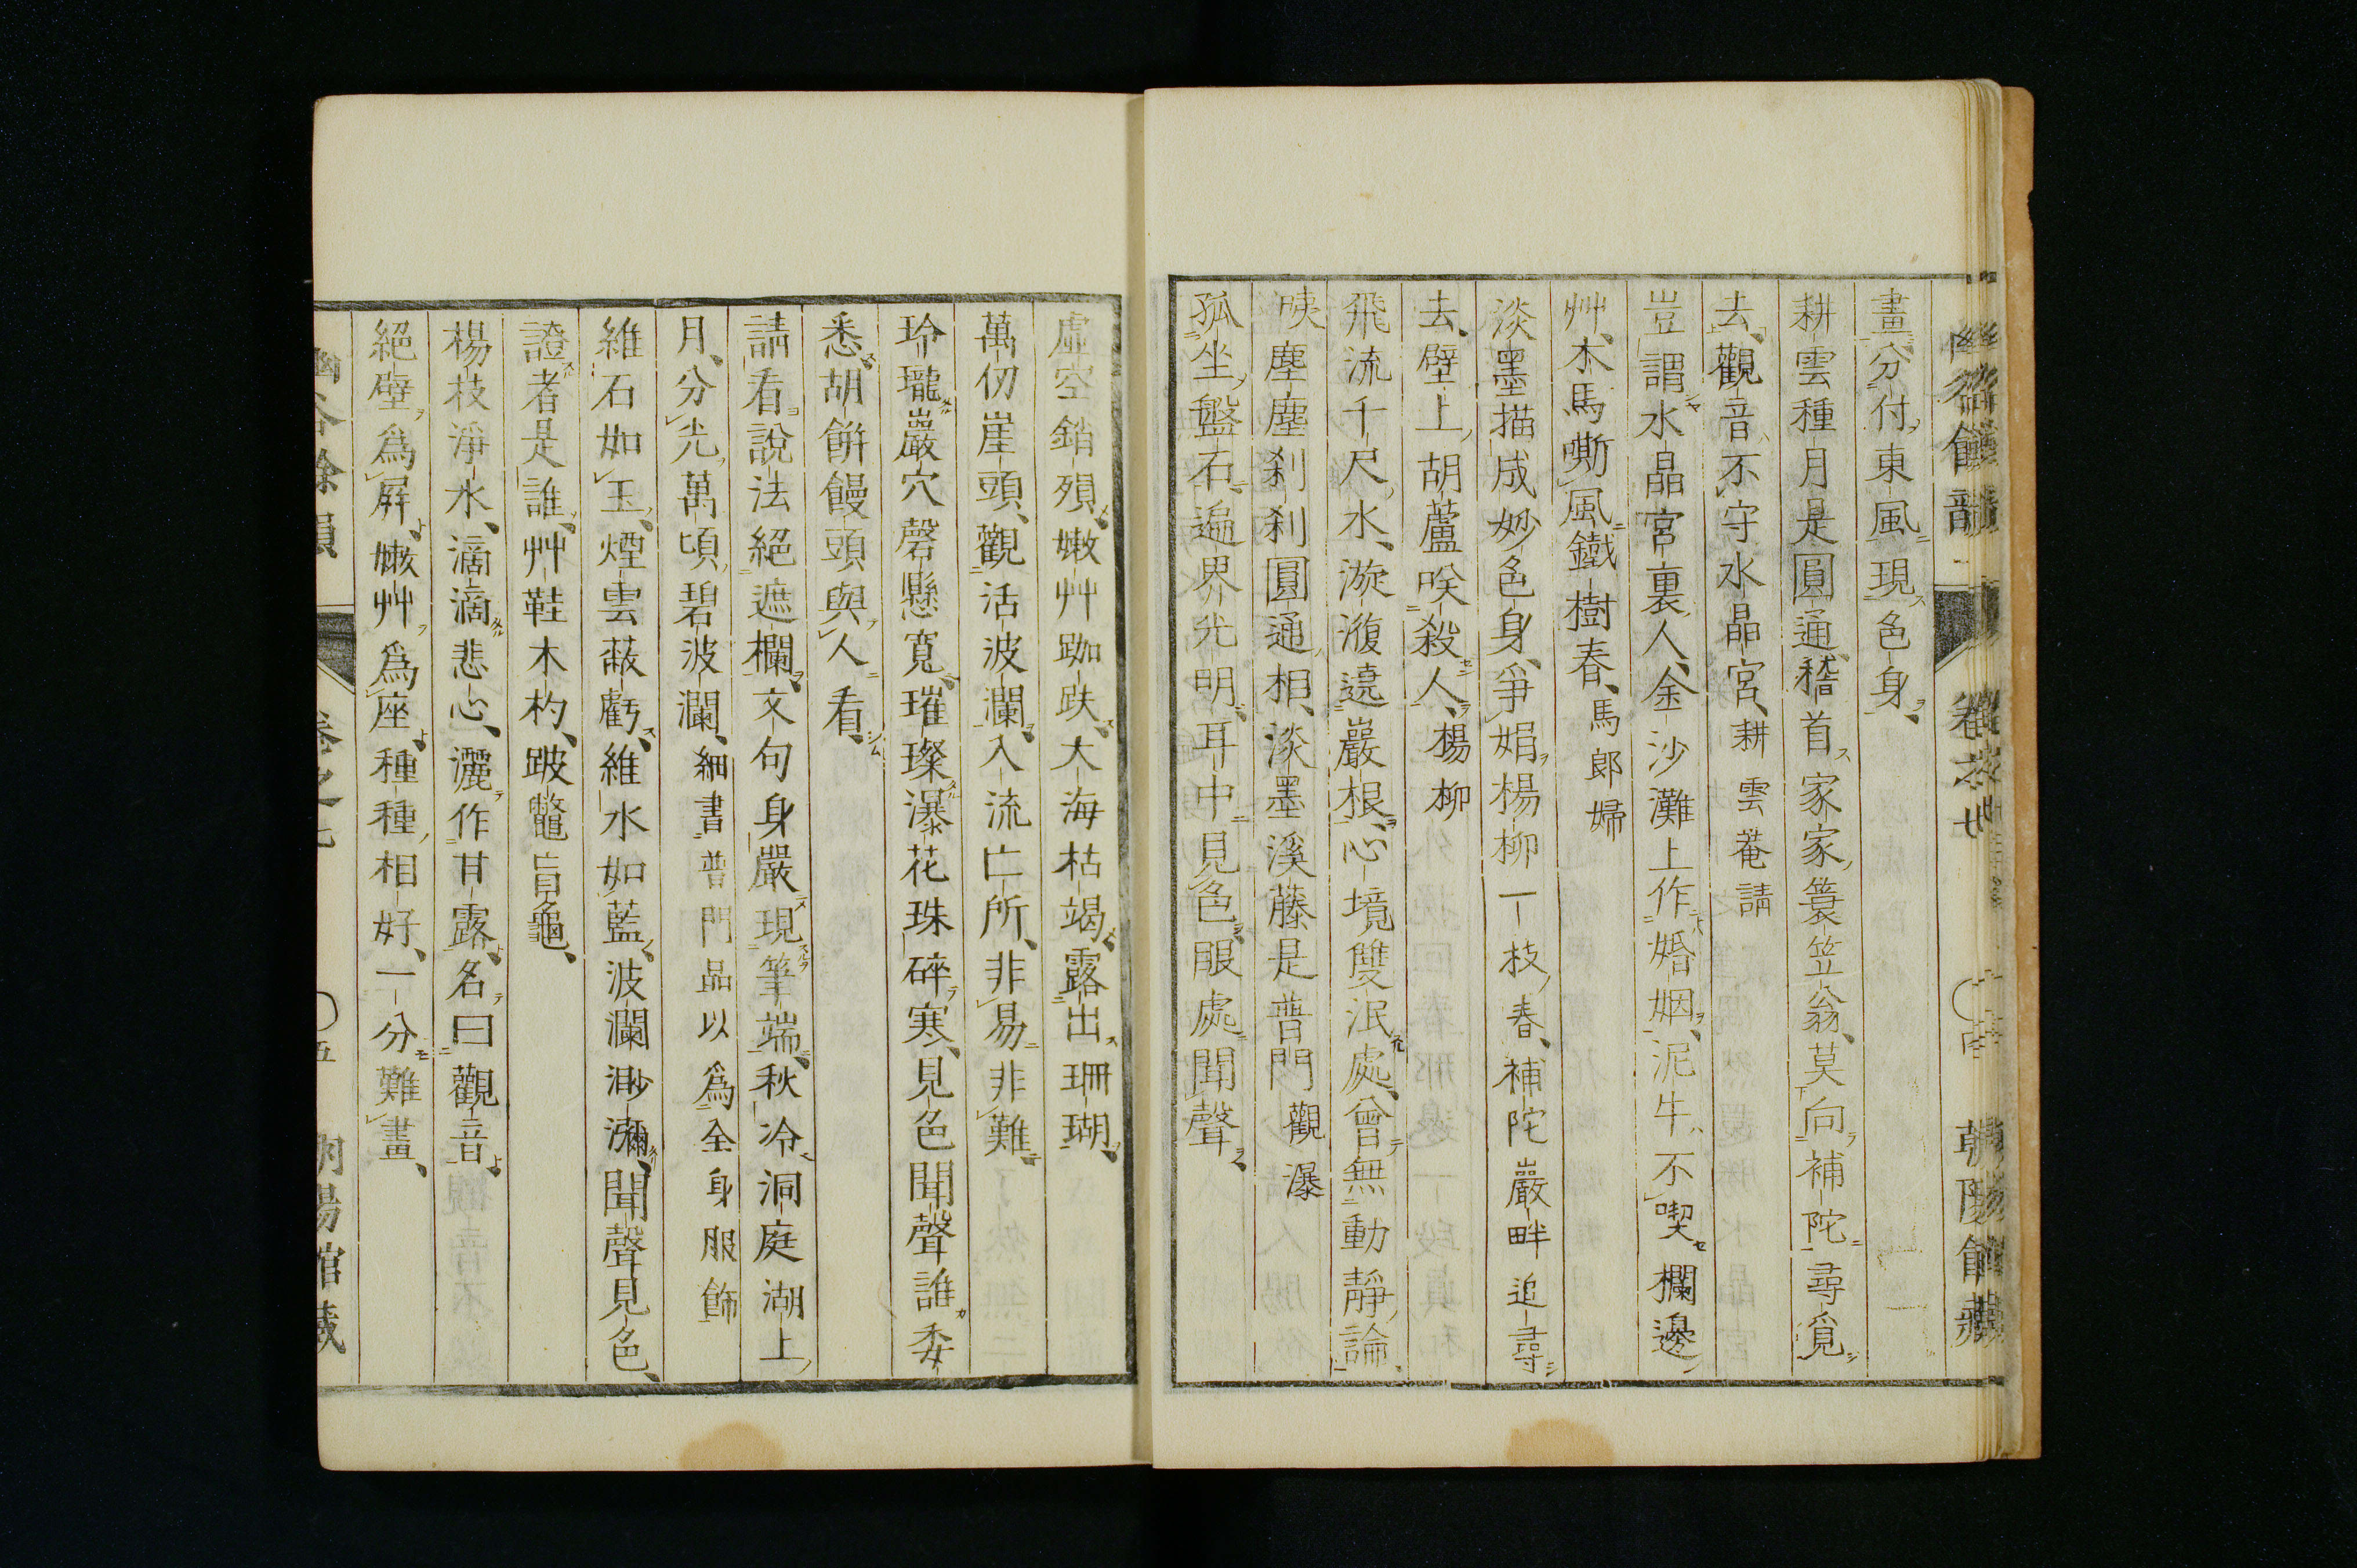 畫分付東風現色身
耕雲種月是圓通稽首家家簑笠翁莫向補陀尋覓
去觀音不守水晶宮耕雲菴請
豈謂水晶宮裏人金沙灘上作婚姻泥牛不喫欄邊
艸木馬嘶風鐵樹春馬郎婦
淡墨描成妙色身爭娟楊柳一枝春補陀巖畔追尋
去壁上胡蘆咲殺人楊柳
飛流千尺水漩澓遶巖根心境雙泯處曾無動靜論
咦塵塵刹刹圓通相淡墨溪藤是普門觀瀑
孤坐盤石遍界光明耳中見色眼處聞聲
虛空銷殞嫩艸跏趺大海枯竭露出珊瑚
萬仞崖頭觀活波瀾入流亡所非易非難
玲瓏巖穴磬懸寬璀璨瀑花珠碎寒見色聞聲誰委
悉胡餅饅頭與人看
請看說法絕遮欄文句身嚴現筆端秋冷洞庭湖上
月分光萬頃碧波瀾細書普門品以爲全身服飾
維石如玉煙雲蔽虧維水如藍波瀾渺瀰聞聲見色
證者是誰艸鞋木杓跛鼈盲龜
楊枝淨水滴滴悲心灑作甘露名曰觀音
絕壁爲屛嫩艸爲座種種相好一分難畫
五